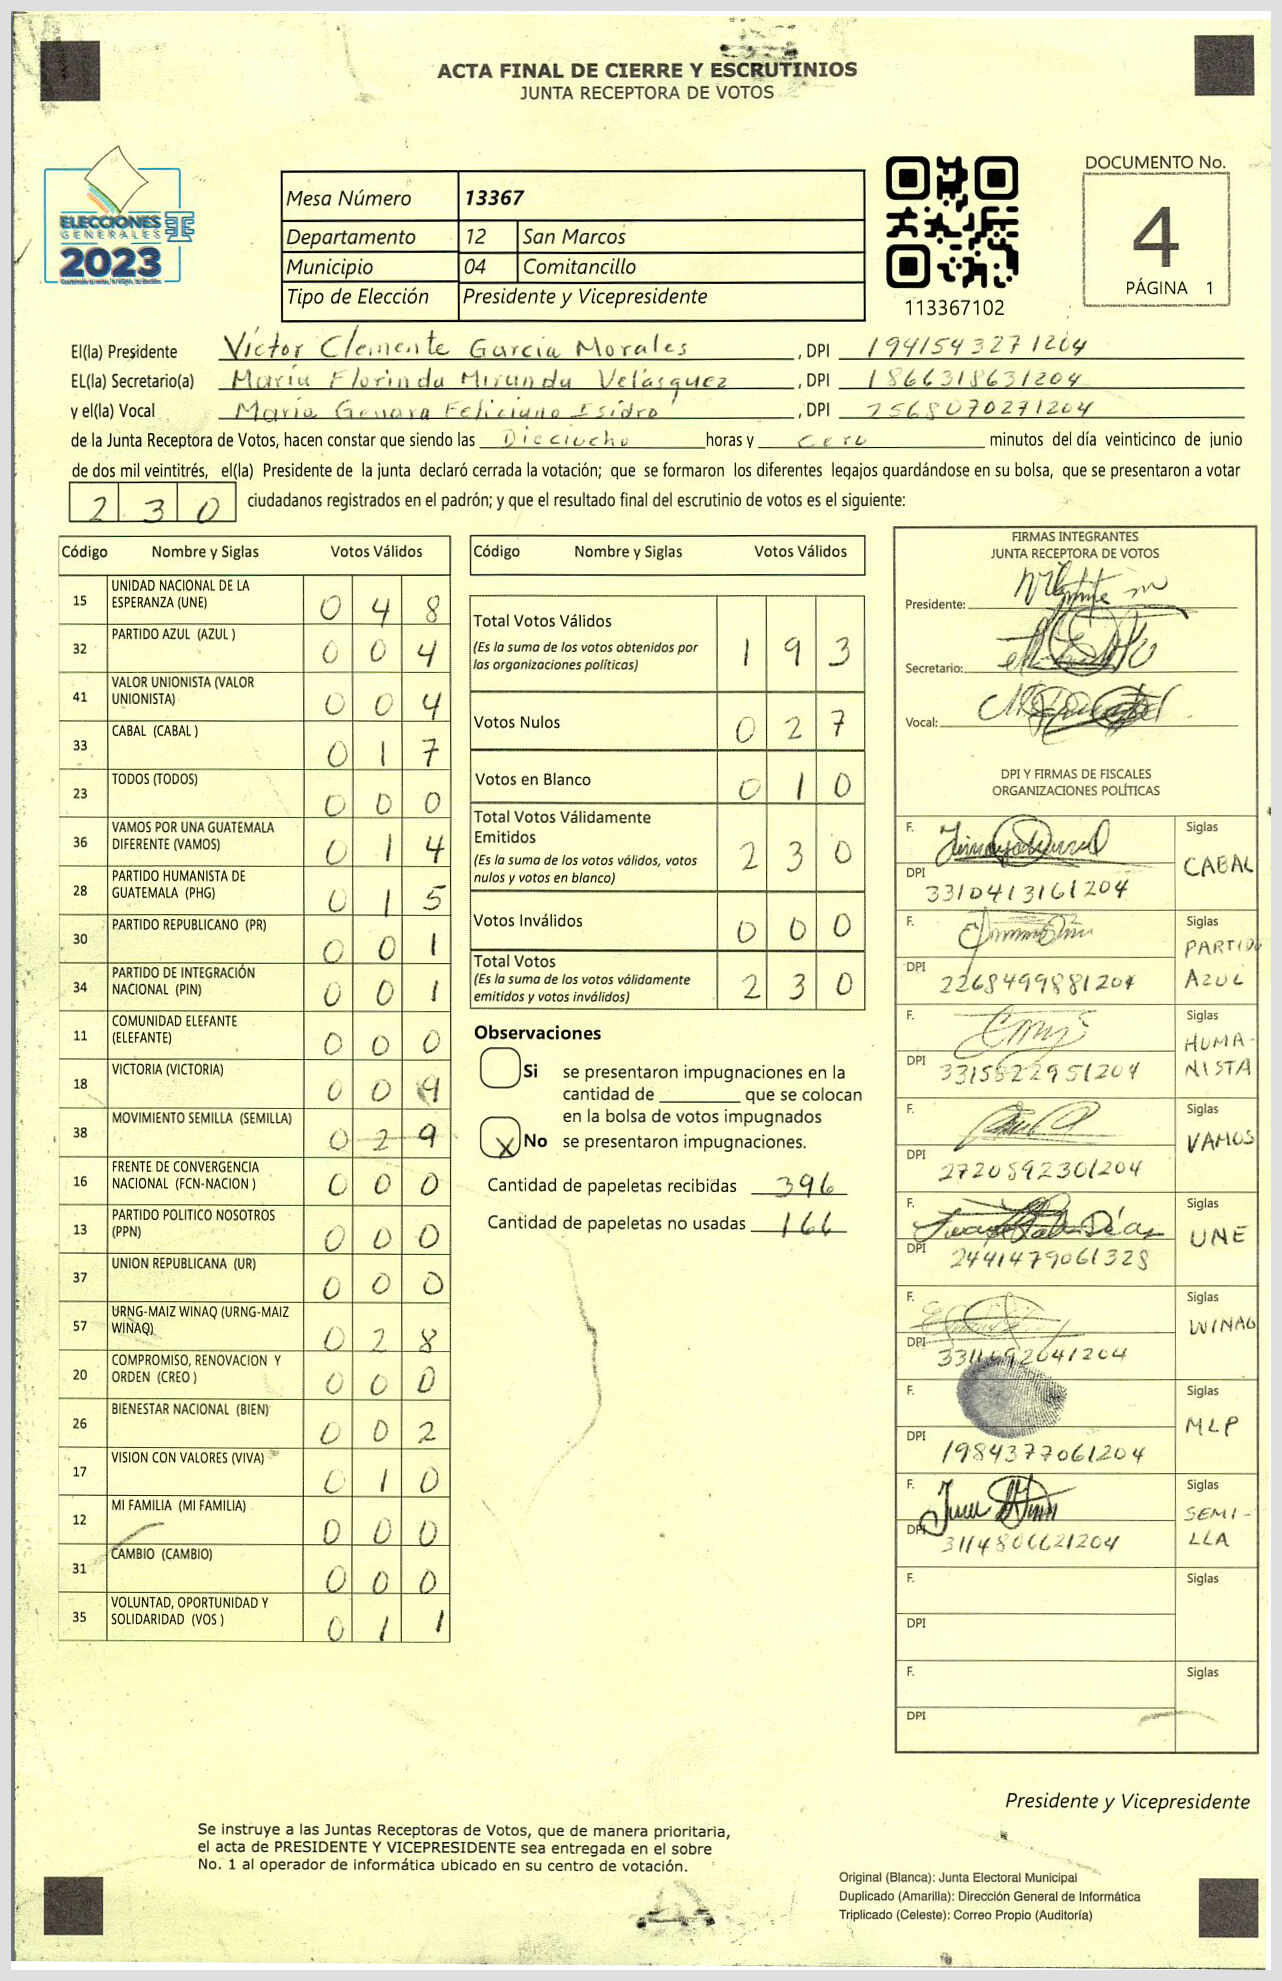 ACTA FINAL DE CIERRE Y ESCRUTINIOS
JUNTA RECEPTORA DE VOTOS
ELECCIONES
GENERALES
2023
Mesa Número 13367
Departamento 12 San Marcos
Municipio 04 Comitancillo
Tipo de Elección Presidente y Vicepresidente
113367102
DOCUMENTO No.
4
PÁGINA 1
El(la) Presidente Víctor Clemente García Morales, DPI 1941543271204
EL(la) Secretario(a) María Florinda Miranda Velásquez, DPI 1866318631204
y el(la) Vocal María Genara Feliciano Isidro, DPI 2568070271204
de la Junta Receptora de Votos, hacen constar que siendo las Dieciocho horas y cero minutos del día veinticinco de junio
de dos mil veintitrés, el(la) Presidente de la junta declaró cerrada la votación; que se formaron los diferentes legajos guardándose en su bolsa, que se presentaron a votar
230 ciudadanos registrados en el padrón; y que el resultado final del escrutinio de votos es el siguiente:
Código Nombre y Siglas Votos Válidos
15 UNIDAD NACIONAL DE LA ESPERANZA (UNE) 0 4 8
32 PARTIDO AZUL (AZUL ) 0 0 4
41 VALOR UNIONISTA (VALOR UNIONISTA) 0 0 4
33 CABAL (CABAL ) 0 1 7
23 TODOS (TODOS) 0 0 0
36 VAMOS POR UNA GUATEMALA DIFERENTE (VAMOS) 0 1 4
28 PARTIDO HUMANISTA DE GUATEMALA (PHG) 0 1 5
30 PARTIDO REPUBLICANO (PR) 0 0 1
34 PARTIDO DE INTEGRACIÓN NACIONAL (PIN) 0 0 1
11 COMUNIDAD ELEFANTE (ELEFANTE) 0 0 0
18 VICTORIA (VICTORIA) 0 0 9
38 MOVIMIENTO SEMILLA (SEMILLA) 0 2 9
16 FRENTE DE CONVERGENCIA NACIONAL (FCN-NACION ) 0 0 0
13 PARTIDO POLITICO NOSOTROS (PPN) 0 0 0
37 UNION REPUBLICANA (UR) 0 0 0
57 URNG-MAIZ WINAQ (URNG-MAIZ WINAQ) 0 2 8
20 COMPROMISO, RENOVACION Y ORDEN (CREO ) 0 0 0
26 BIENESTAR NACIONAL (BIEN) 0 0 2
17 VISION CON VALORES (VIVA) 0 1 0
12 MI FAMILIA (MI FAMILIA) 0 0 0
31 CAMBIO (CAMBIO) 0 0 0
35 VOLUNTAD, OPORTUNIDAD Y SOLIDARIDAD (VOS ) 0 1 1
Código Nombre y Siglas Votos Válidos
Total Votos Válidos 1 9 3
(Es la suma de los votos obtenidos por
las organizaciones políticas)
Votos Nulos 0 2 7
Votos en Blanco 0 1 0
Total Votos Válidamente
Emitidos 2 3 0
(Es la suma de los votos válidos, votos
nulos y votos en blanco)
Votos Inválidos 0 0 0
Total Votos 2 3 0
(Es la suma de los votos válidamente
emitidos y votos inválidos)
Observaciones
Si se presentaron impugnaciones en la
cantidad de ________ que se colocan
en la bolsa de votos impugnados
X No se presentaron impugnaciones.
Cantidad de papeletas recibidas 396
Cantidad de papeletas no usadas 166
FIRMAS INTEGRANTES
JUNTA RECEPTORA DE VOTOS
Presidente:
Secretario:
Vocal:
DPI Y FIRMAS DE FISCALES
ORGANIZACIONES POLÍTICAS
F. Siglas CABAL
DPI 3310413161204
F. Siglas PARTIDO AZUL
DPI 2268499881204
F. Siglas HUMA-NISTA
DPI 3315822951204
F. Siglas VAMOS
DPI 2720592301204
F. Siglas UNE
DPI 2441479061328
F. Siglas WINAQ
DPI 3311692041204
F. Siglas MLP
DPI 1984377061204
F. Siglas SEMI-LLA
DPI 3114806621204
F. Siglas
DPI
F. Siglas
DPI
Presidente y Vicepresidente
Se instruye a las Juntas Receptoras de Votos, que de manera prioritaria,
el acta de PRESIDENTE Y VICEPRESIDENTE sea entregada en el sobre
No. 1 al operador de informática ubicado en su centro de votación.
Original (Blanca): Junta Electoral Municipal
Duplicado (Amarilla): Dirección General de Informática
Triplicado (Celeste): Correo Propio (Auditoría)